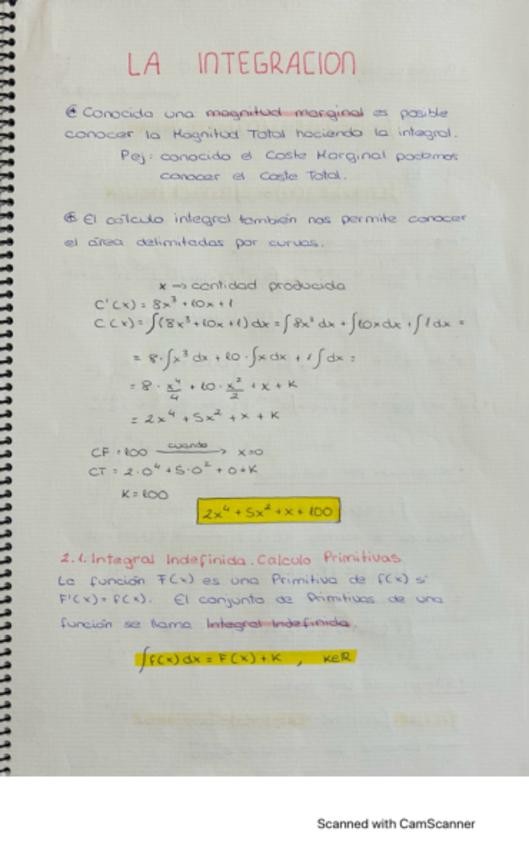 LA INTEGRACION
Conocida una magnitud marginal es posible
conocer la Magnitud Total haciendo la integral.
Pej: conocido el Coste Marginal podemos
conocer el Coste Total.
El cálculo integral también nos permite conocer
el área delimitadas por curvas.
x → cantidad producida
C'(x) = 8x³ + 10x + 1
C(x) = ∫(8x³ + 10x + 1) dx = ∫8x³ dx + ∫10x dx + ∫1 dx =
= 8·∫x³ dx + 10·∫x dx + 1∫dx =
= 8 · x⁴/4 + 10 · x²/2 + x + K
= 2x⁴ + 5x² + x + K
CF = 100 cuando → x=0
CT = 2·0⁴ + 5·0² + 0 + K
K = 100
2x⁴ + 5x² + x + 100
2.1. Integral Indefinida. Calculo Primitivas
La función F(x) es una Primitiva de f(x) si
F'(x) = f(x). El conjunto de Primitivas de una
función se llama Integral Indefinida.
∫f(x) dx = F(x) + K , K∈R
Scanned with CamScanner